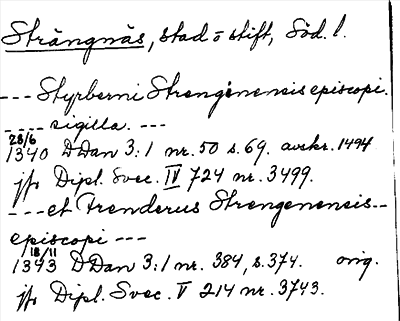 Strängnäs, stad o stift, Söd. l.
--- Styrberni Strenginensis episcopi.
---- sigilla. ---
28/6
1340 DDan 3:1 nr. 50 s. 69. avskr. 1494
jfr Dipl. Svec. IV 724 nr. 3499.
--- et Frenderus Strengenensis--
episcopi ---
18/11
1343 DDan 3:1 nr. 384, s. 374. orig.
jfr Dipl. Svec. V 214 nr. 3743.